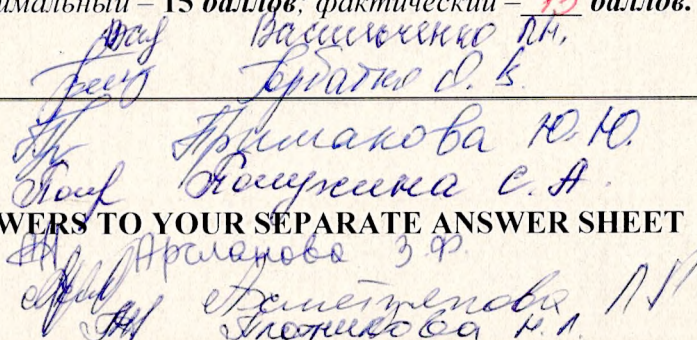 имальный – 15 баллов, фактический – 13 баллов.
Васильченко Л.Н.
Горбатко О. В.
Примакова Ю.Ю.
Полухина С. А.
WERS TO YOUR SEPARATE ANSWER SHEET
Арсланова З.Ф.
Плотникова Н.Л.